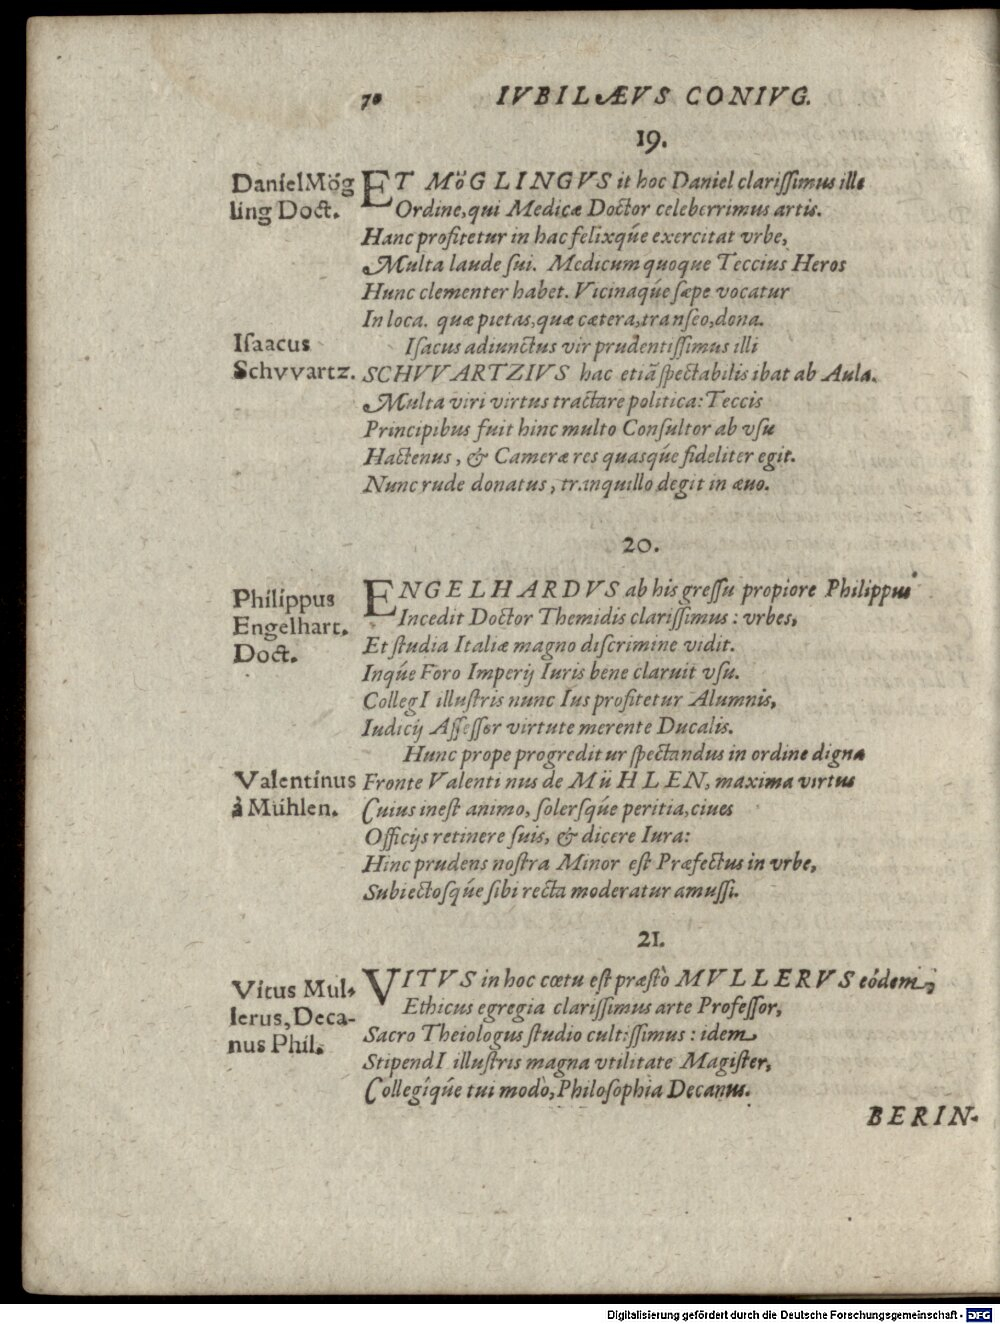 70 IVBILÆVS CONIVG.
19.
Daniel Mög
ling Doct.
ET MöGLINGVS it hoc Daniel clarissimus ille
Ordine, qui Medicæ Doctor celeberrimus artis.
Hanc profitetur in hac felixq́ue exercitat vrbe,
Multa laude sui. Medicum quoque Teccius Heros
Hunc clementer habet. Vicinaq́ue sæpe vocatur
In loca. quæ pietas, quæ cætera, transeo, dona.
Isaacus
Schvvartz.
Isacus adiunctus vir prudentissimus illi
SCHVVARTZIVS hac etiã spectabilis ibat ab Aula.
Multa viri virtus tractare politica: Teccis
Principibus fuit hinc multo Consultor ab vsu
Hactenus, & Cameræ res quasq́ue fideliter egit.
Nunc rude donatus, tranquillo degit in æuo.
20.
Philippus
Engelhart.
Doct.
ENGELHARDVS ab his gressu propiore Philippus
Incedit Doctor Themidis clarissimus: vrbes,
Et studia Italiæ magno discrimine vidit.
Inq́ue Foro Imperij Iuris bene claruit vsu.
CollegI illustris nunc Ius profitetur Alumnis,
Iudicij Assessor virtute merente Ducalis.
Hunc prope progreditur spectandus in ordine digna
Valentinus
à Mühlen.
Fronte Valentinus de MüHLEN, maxima virtus
Cuius inest animo, solersq́ue peritia, ciues
Officijs retinere suis, & dicere Iura:
Hinc prudens nostra Minor est Præfectus in vrbe,
Subiectosq́ue sibi recta moderatur amussi.
21.
Vitus Mul-
lerus, Deca-
nus Phil.
VITVS in hoc cœtu est præstò MVLLERVS eódem,
Ethicus egregia clarissimus arte Professor,
Sacro Theiologus studio cultissimus: idem
StipendI illustris magna vtilitate Magister,
Collegîq́ue tui modò, Philosophia Decanus.
BERIN-
Digitalisierung gefördert durch die Deutsche Forschungsgemeinschaft - DFG